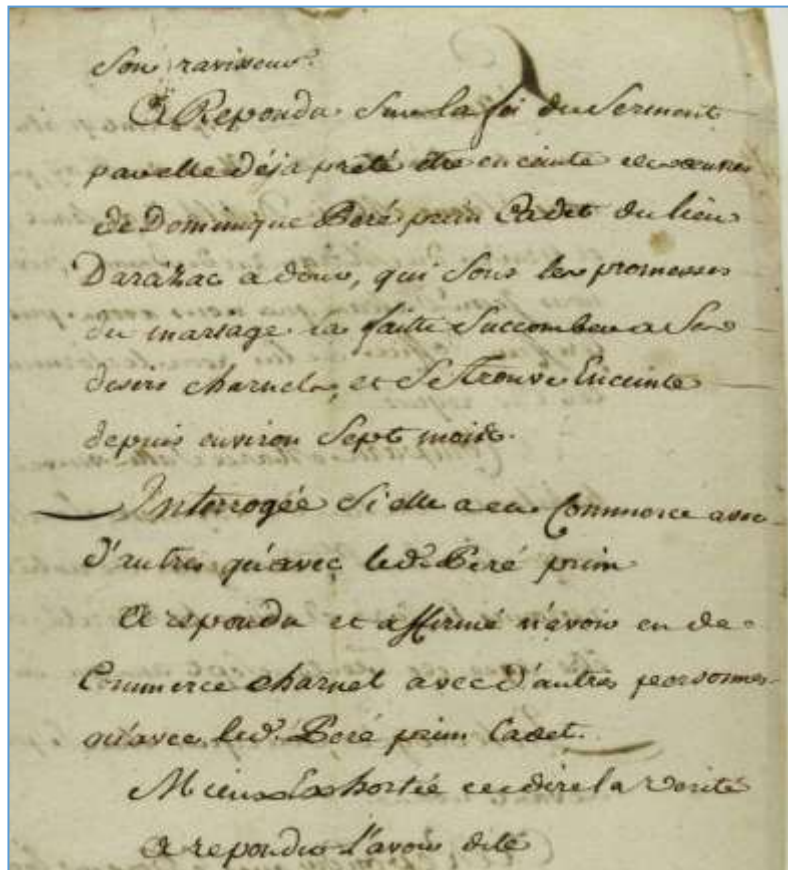 Son ravisseur.
A Repondu Sur la foi du Serment
par elle déja preté être enceinte des œuvres
de Dominique Peré prim Cadet du lieu
Darazac adour, qui Sous les promesses
du mariage la faitte Succomber a Ses
desirs charnels, et Se trouve Enceinte
depuis environ Sept mois.
Interrogée Si elle a eu Commerce avec
d'autres qu'avec led. Peré prim
A repondu et affirmé n'avoir eu de
Commerce charnel avec d'autres personnes
qu'avec led. Peré prim Cadet.
Mieux Exhortée de dire la verité
A repondu l'avoir dite